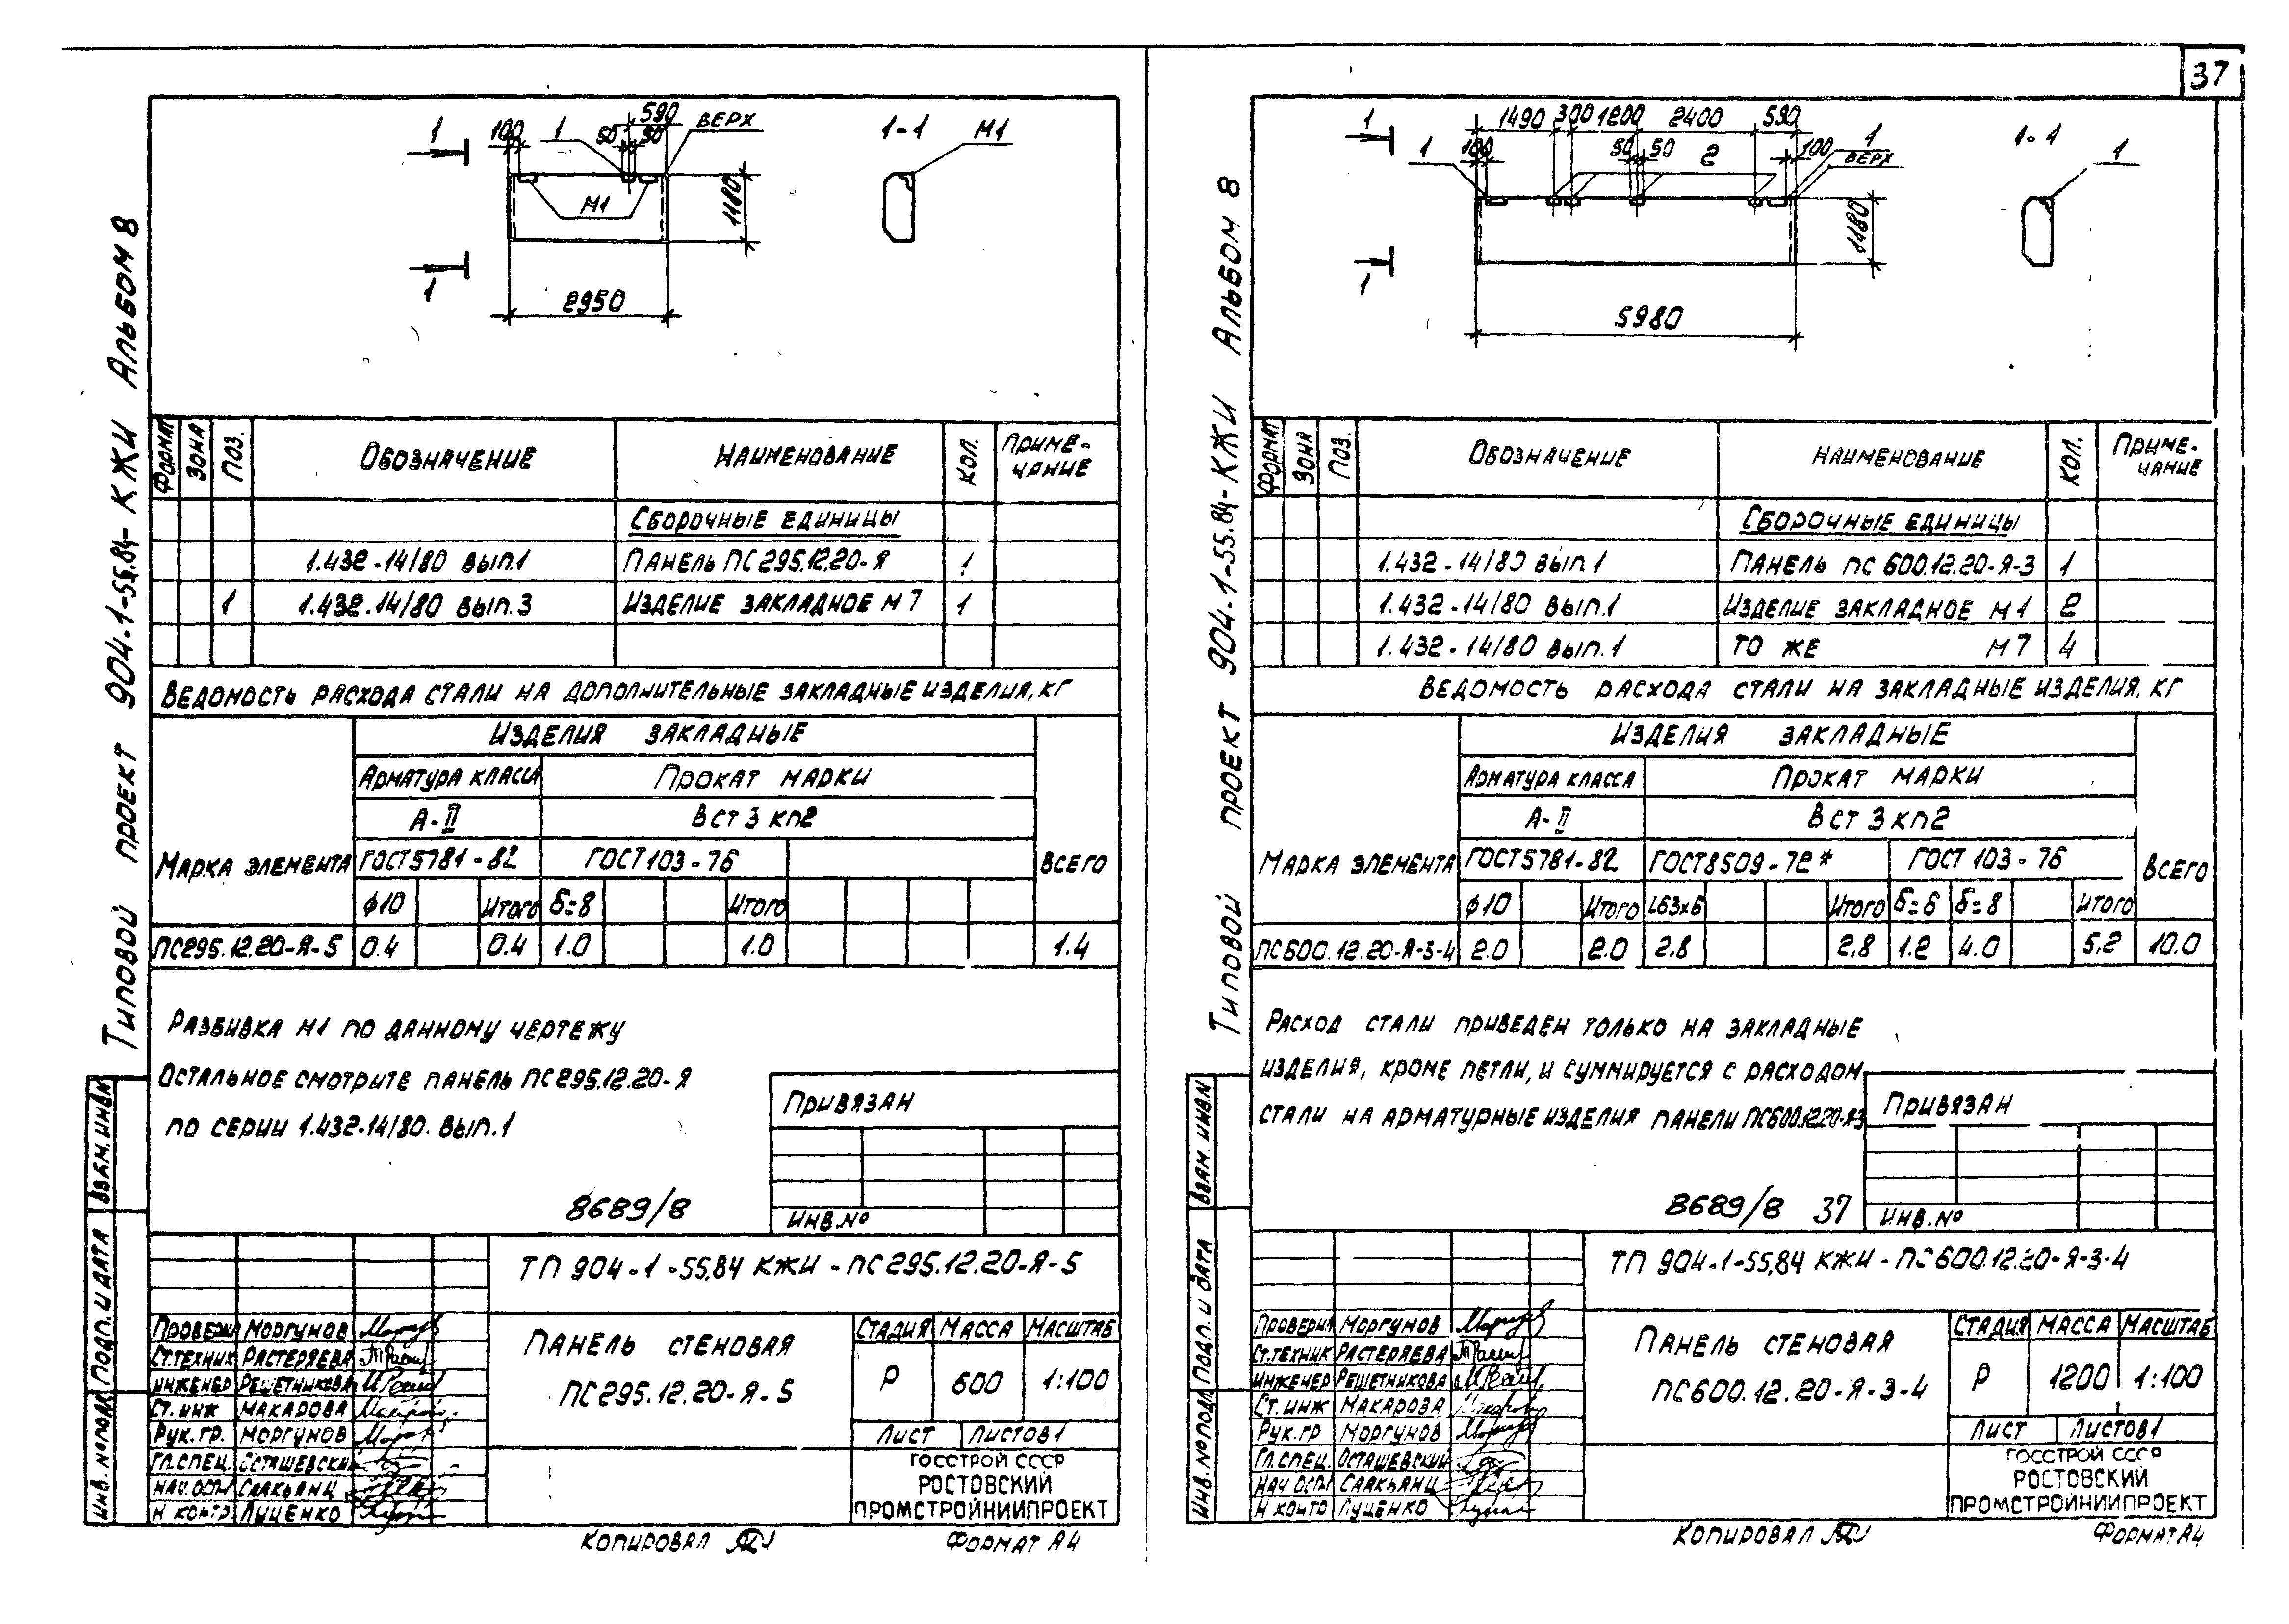 37
Типовой проект 904-1-55.84-КЖИ Альбом 8
1
100
1
590
50
50
ВЕРХ
1-1
М1
М1
1180
1
2950
Формат
Зона
Поз.
Обозначение
Наименование
Кол.
Приме-
чание
Сборочные единицы
1.432-14/80 вып.1 Панель ПС295.12.20-Я 1
1 1.432-14/80 вып.3 Изделие закладное М7 1
Ведомость расхода стали на дополнительные закладные изделия, кг
Марка элемента
Изделия закладные
Всего
Арматура класса
Прокат марки
А-II
ВСт3кп2
ГОСТ5781-82
ГОСТ103-76
ϕ10 Итого δ=8 Итого
ПС295.12.20-Я-5 0.4 0.4 1.0 1.0 1.4
Разбивка М1 по данному чертежу
Остальное смотрите панель ПС295.12.20-Я
по серии 1.432-14/80. вып.1
Привязан
Инв.№
8689/8
Взам. инв.№
Подп. и дата
Инв. № подл.
ТП 904-1-55.84 КЖИ-ПС295.12.20-Я-5
Проверил Моргунов
Ст.техник Растеряева
Инженер Решетникова
Ст. инж Макарова
Рук.гр. Моргунов
Гл.спец. Осташевский
Нач.отд Саакьянц
Н контр Луценко
Панель стеновая
ПС295.12.20-Я-5
Стадия Масса Масштаб
Р 600 1:100
Лист Листов 1
ГОССТРОЙ СССР
РОСТОВСКИЙ
ПРОМСТРОЙНИИПРОЕКТ
Копировал
Формат А4
Типовой проект 904-1-55.84-КЖИ Альбом 8
1
1490 300 1200 2400 590
1
100
50
50
2
100
1
ВЕРХ
1-1
1
1180
1
5980
Формат
Зона
Поз.
Обозначение
Наименование
Кол.
Приме-
чание
Сборочные единицы
1.432-14/80 вып.1 Панель ПС600.12.20-Я-3 1
1.432-14/80 вып.1 Изделие закладное М1 2
1.432-14/80 вып.1 То же М7 4
Ведомость расхода стали на закладные изделия, кг
Марка элемента
Изделия закладные
Всего
Арматура класса
Прокат марки
А-II
ВСт3кп2
ГОСТ5781-82
ГОСТ8509-72*
ГОСТ103-76
ϕ10 Итого L63х6 Итого δ=6 δ=8 Итого
ПС600.12.20-Я-3-4 2.0 2.0 2.8 2.8 1.2 4.0 5.2 10.0
Расход стали приведен только на закладные
изделия, кроме петли, и суммируется с расходом
стали на арматурные изделия панели ПС600.12.20-Я-3
Привязан
Инв.№
8689/8 37
Взам. инв.№
Подп. и дата
Инв. № подл.
ТП 904-1-55.84 КЖИ-ПС600.12.20-Я-3-4
Проверил Моргунов
Ст.техник Растеряева
Инженер Решетникова
Ст. инж Макарова
Рук.гр Моргунов
Гл.спец. Осташевский
Нач отд Саакьянц
Н контр Луценко
Панель стеновая
ПС600.12.20-Я-3-4
Стадия Масса Масштаб
Р 1200 1:100
Лист Листов 1
ГОССТРОЙ СССР
РОСТОВСКИЙ
ПРОМСТРОЙНИИПРОЕКТ
Копировал
Формат А4